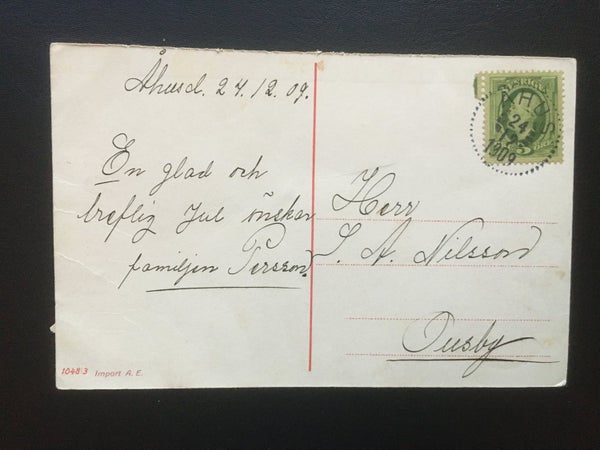 Åhusd. 24.12.09.
En glad och
treflig Jul önskar
familjen Persson.
Herr
S. A. Nilsson
Ousby
SVERIGE
ÅHUS
24
12
1909
5 ÖRE
1048/3 Import A. E.